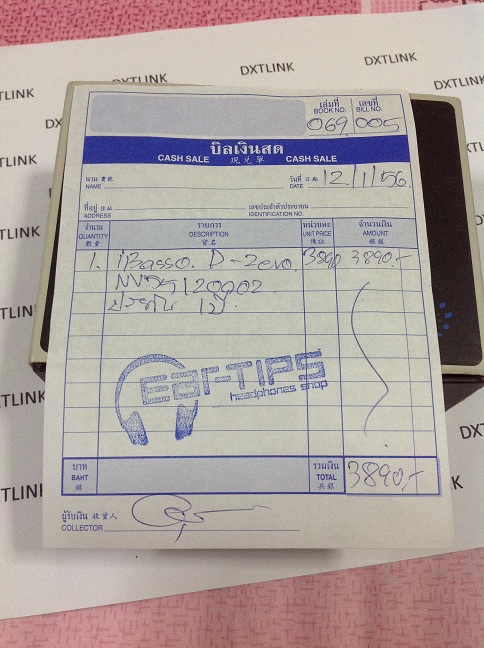 DXTLINK
DXTLINK
DXTLINK
DXTLINK
เล่มที่ เลขที่
BOOK NO. BILL NO.
069 005
บิลเงินสด
CASH SALE 現兌單 CASH SALE
นาม 寶號
NAME
วันที่ 日期
DATE 12/1/56
ที่อยู่ 住址
ADDRESS
เลขประจำตัวประชาชน
IDENTIFICATION NO.
จำนวน รายการ หน่วยละ จำนวนเงิน
QUANTITY DESCRIPTION UNIT PRICE AMOUNT
數量 貨名 價註 銀錢
1. iBasso. D-Zero. 3890 3890.-
ประกัน 1ปี
Ear-TIPS
headphones shop
บาท รวมเงิน
BAHT TOTAL 3890.-
銖 共銀
ผู้รับเงิน 收貨人
COLLECTOR